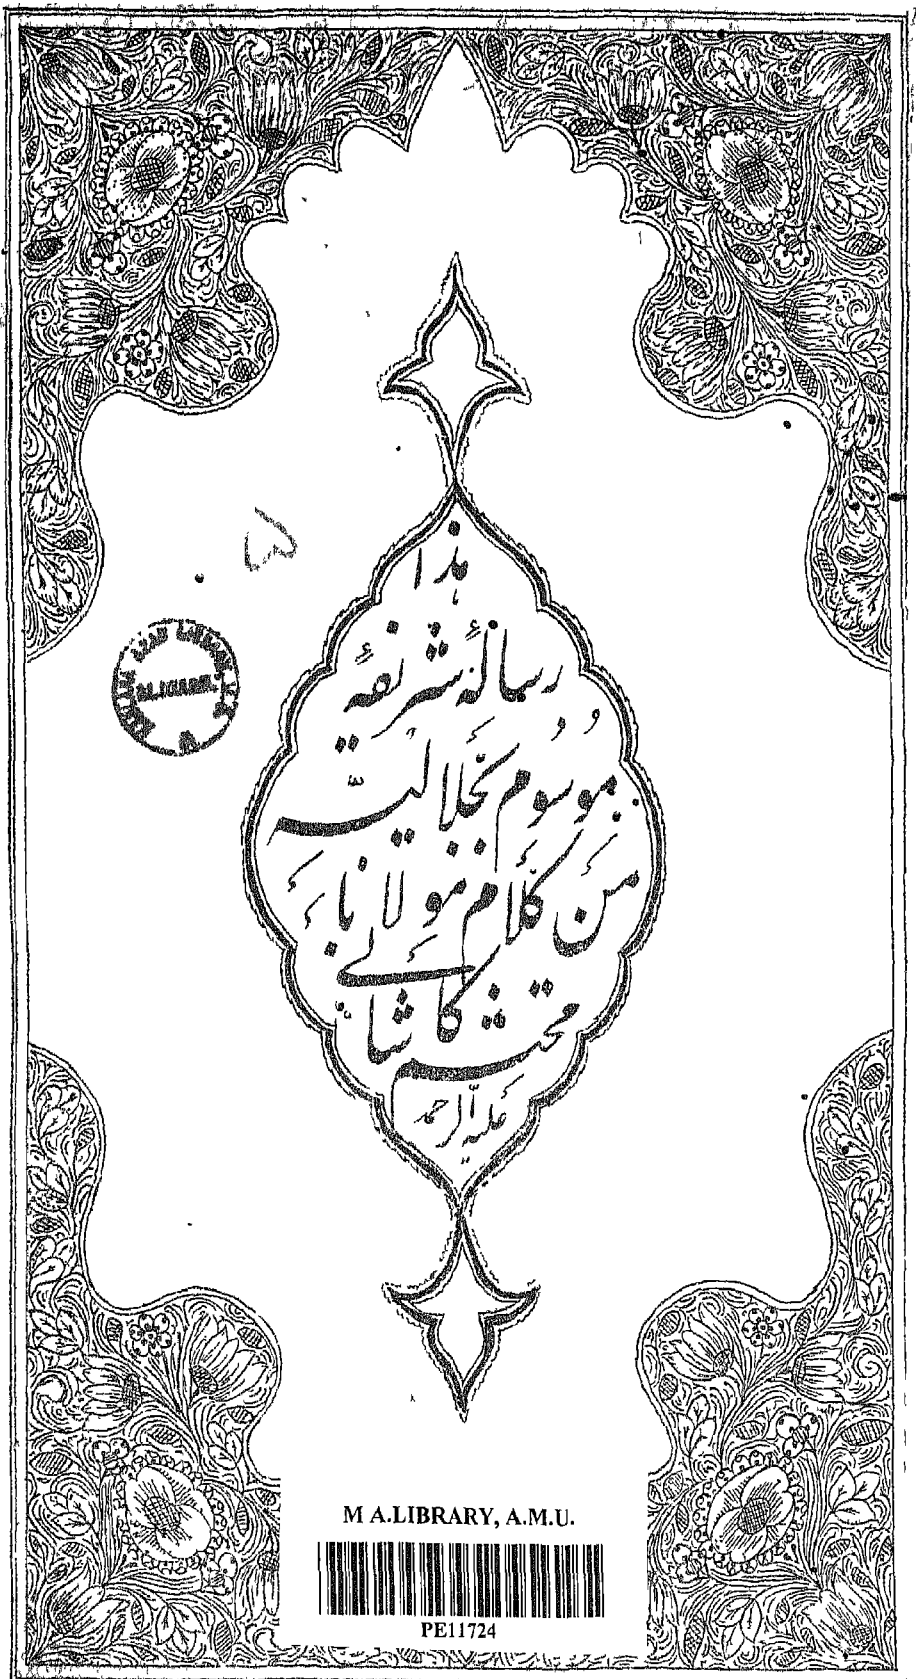 هذا
رسالهٔ شریفهٔ
موسوم بجلالیه
من کلام مولانا
محتشم کاشانی
علیه الرحمه
۵
ALIGARH.
M A.LIBRARY, A.M.U.
PE11724